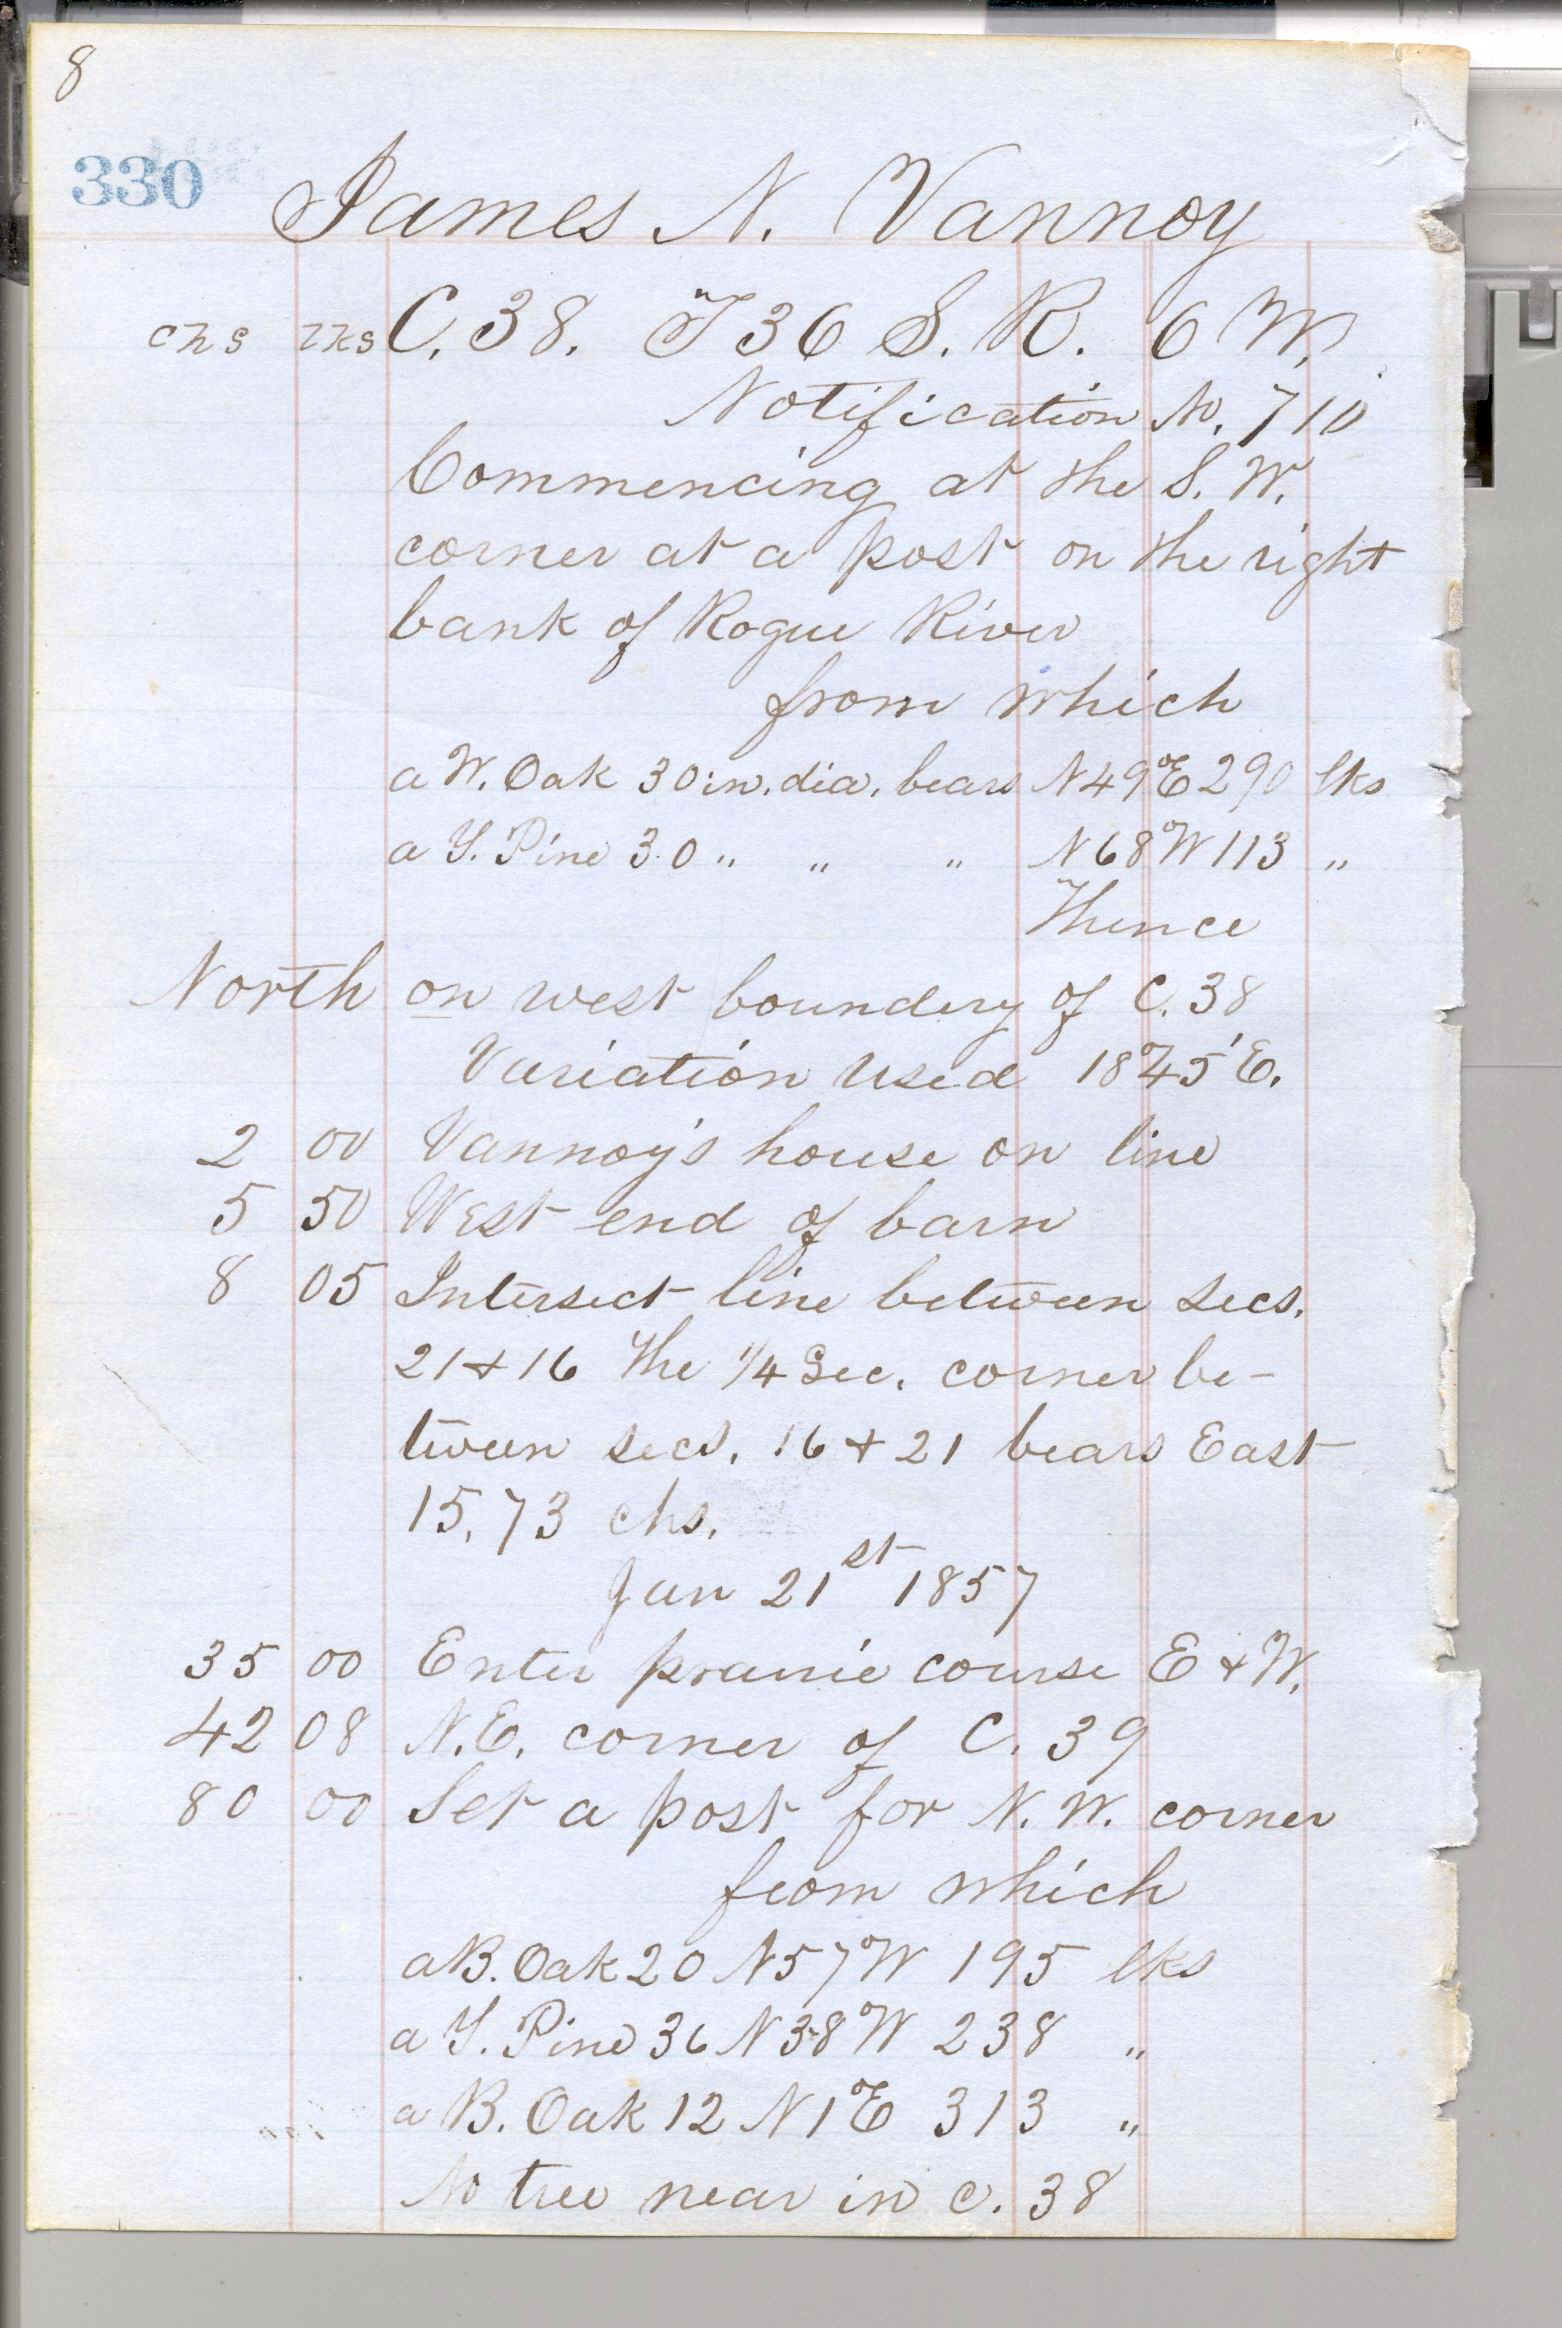 8
330
James N. Vannoy
chs lks C. 38. T 36 S. R. 6 W.
Notification No. 710
Commencing at the S. W.
corner at a post on the right
bank of Rogue River
from which
a W. Oak 30 in. dia. bears N 49° E 290 lks
a Y. Pine 30 " " " N 68° W 113 "
Thence
North on west boundery of C. 38
Variation used 18° 45' E.
2 00 Vannoy's house on line
5 50 West end of barn
8 05 Intersect line between secs.
21 & 16 The 1/4 Sec. corner be-
tween secs. 16 & 21 bears East
15,73 chs.
Jan 21st 1857
35 00 Enter prairie course E & W.
42 08 N.E. corner of C. 39
80 00 Set a post for N. W. corner
from which
a B. Oak 20 N 57° W 195 lks
a Y. Pine 36 N 38° W 238 "
a B. Oak 12 N 1° E 313 "
No tree near in C. 38